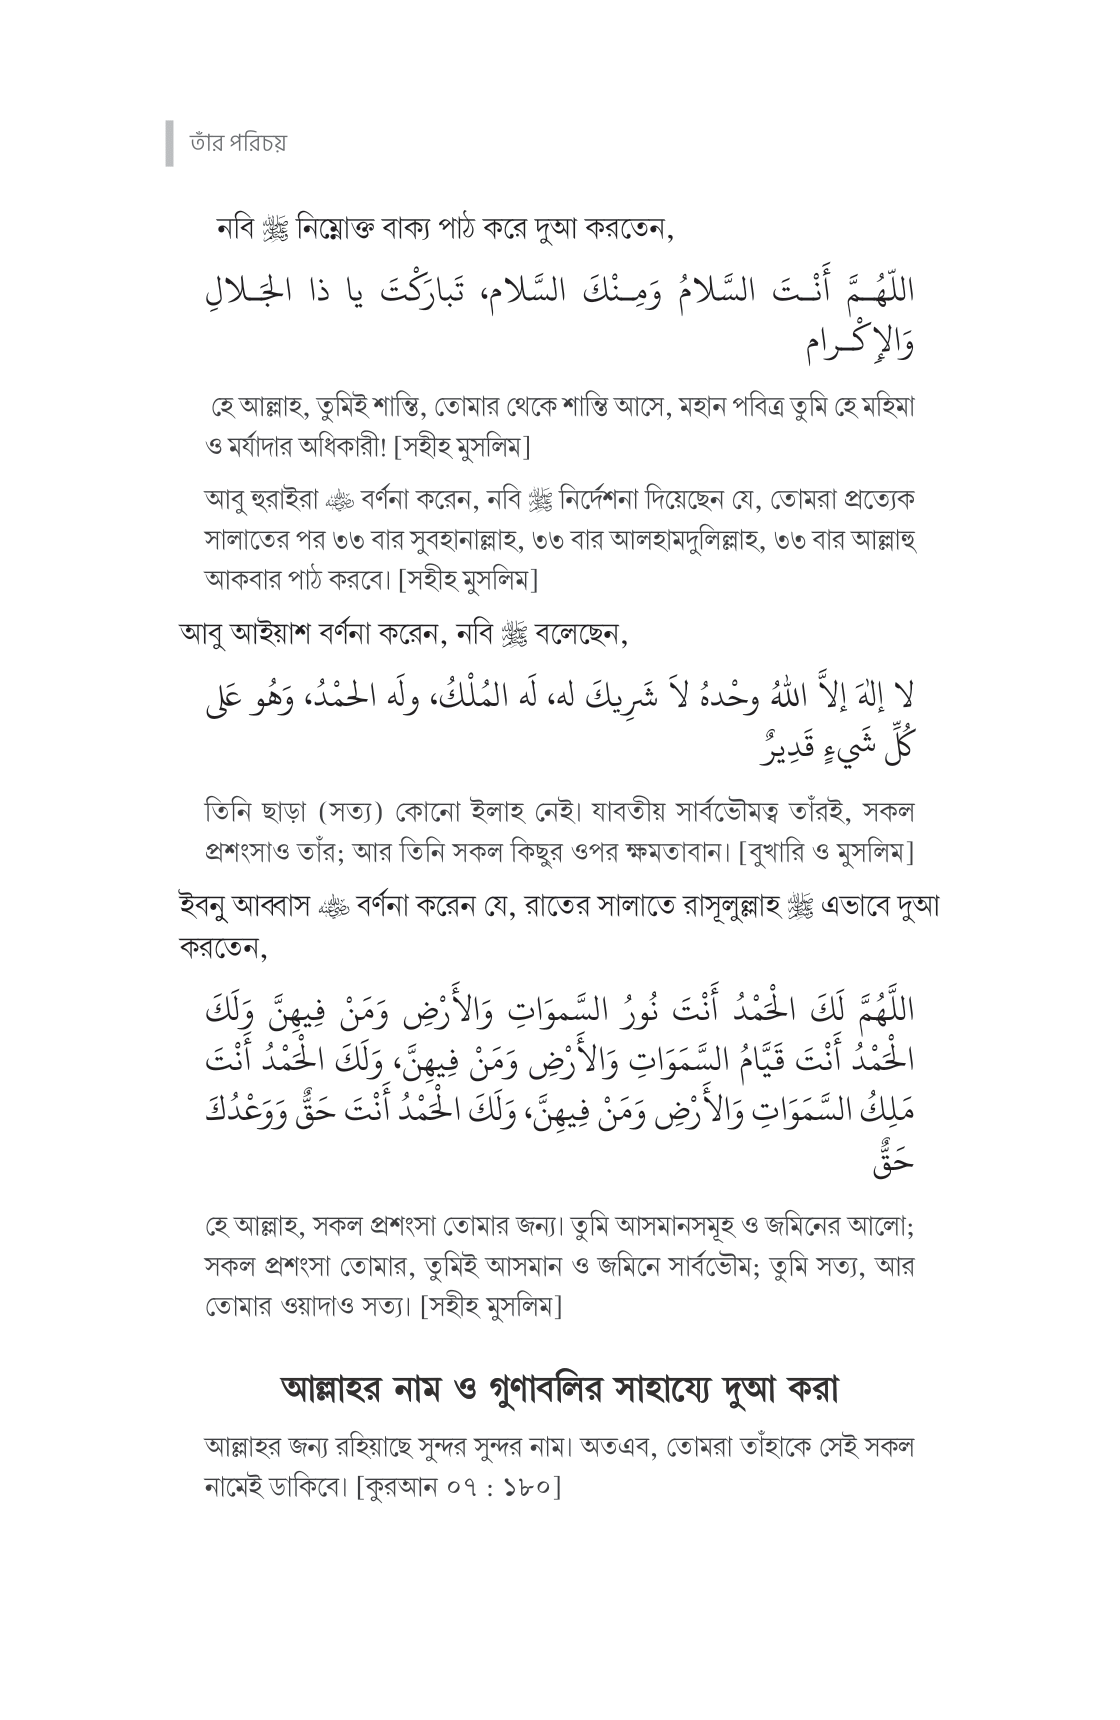 তাঁর পরিচয়
নবি ﷺ নিম্নোক্ত বাক্য পাঠ করে দুআ করতেন,
اللّهُـمَّ أَنْـتَ السَّلامُ وَمِـنْكَ السَّلام، تَبارَكْتَ يا ذا الجَـلالِ
وَالإِكْـرام
হে আল্লাহ, তুমিই শান্তি, তোমার থেকে শান্তি আসে, মহান পবিত্র তুমি হে মহিমা
ও মর্যাদার অধিকারী! [সহীহ মুসলিম]
আবু হুরাইরা ﵁ বর্ণনা করেন, নবি ﷺ নির্দেশনা দিয়েছেন যে, তোমরা প্রত্যেক
সালাতের পর ৩৩ বার সুবহানাল্লাহ, ৩৩ বার আলহামদুলিল্লাহ, ৩৩ বার আল্লাহু
আকবার পাঠ করবে। [সহীহ মুসলিম]
আবু আইয়াশ বর্ণনা করেন, নবি ﷺ বলেছেন,
لا إلهَ إلاَّ اللهُ وحْدهُ لاَ شَرِيكَ له، لَه المُلْكُ، ولَه الحمْدُ، وَهُو عَلى
كُلِّ شَيءٍ قَدِيرٌ
তিনি ছাড়া (সত্য) কোনো ইলাহ নেই। যাবতীয় সার্বভৌমত্ব তাঁরই, সকল
প্রশংসাও তাঁর; আর তিনি সকল কিছুর ওপর ক্ষমতাবান। [বুখারি ও মুসলিম]
ইবনু আব্বাস ﵁ বর্ণনা করেন যে, রাতের সালাতে রাসূলুল্লাহ ﷺ এভাবে দুআ
করতেন,
اللَّهُمَّ لَكَ الْحَمْدُ أَنْتَ نُورُ السَّموَاتِ وَالأَرْضِ وَمَنْ فِيهِنَّ وَلَكَ
الْحَمْدُ أَنْتَ قَيَّامُ السَّمَوَاتِ وَالأَرْضِ وَمَنْ فِيهِنَّ، وَلَكَ الْحَمْدُ أَنْتَ
مَلِكُ السَّمَوَاتِ وَالأَرْضِ وَمَنْ فِيهِنَّ، وَلَكَ الْحَمْدُ أَنْتَ حَقٌّ وَوَعْدُكَ
حَقٌّ
হে আল্লাহ, সকল প্রশংসা তোমার জন্য। তুমি আসমানসমূহ ও জমিনের আলো;
সকল প্রশংসা তোমার, তুমিই আসমান ও জমিনে সার্বভৌম; তুমি সত্য, আর
তোমার ওয়াদাও সত্য। [সহীহ মুসলিম]
আল্লাহর নাম ও গুণাবলির সাহায্যে দুআ করা
আল্লাহর জন্য রহিয়াছে সুন্দর সুন্দর নাম। অতএব, তোমরা তাঁহাকে সেই সকল
নামেই ডাকিবে। [কুরআন ০৭ : ১৮০]